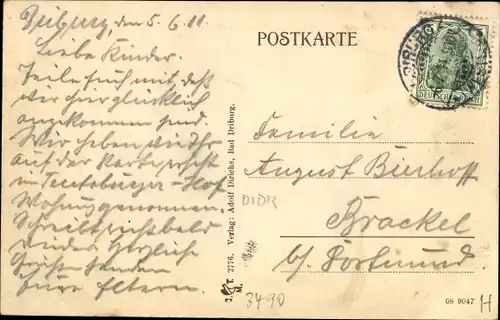 Driburg, den 5.6.11
Liebe Kinder.
Teile Euch mit, daß
wir hier glücklich
angekommen sind.
Wir haben wie Ihr
auf der Karte seht
im Teutoburger-Hof
Wohnung genommen.
Schreibt recht bald
wieder Herzliche
Grüße senden
Eure Eltern.
POSTKARTE
DRIBURG
DEUTSCHES REICH
Familie
August Bierhoff
Brackel
b/ Dortmund.
Verlag: Adolf Dirichs, Bad Driburg.
2776.
DIDR
3490
08 9047 H